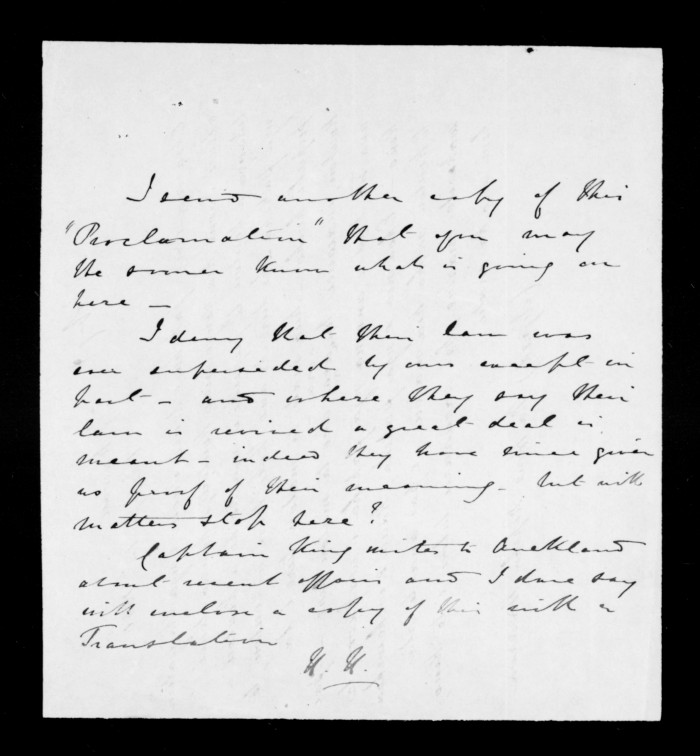 I send another copy of this
"Proclamation" that you may
the sooner know what is going on
here —
I deny that their law was
ever superseded by ours except in
part — and where they say their
law is revived a great deal is
meant — indeed they have since given
us proof of their meaning — but will
matters stop here?
Captain King writes to Auckland
about recent affairs and I dare say
will enclose a copy of this with a
Translation
H. H.